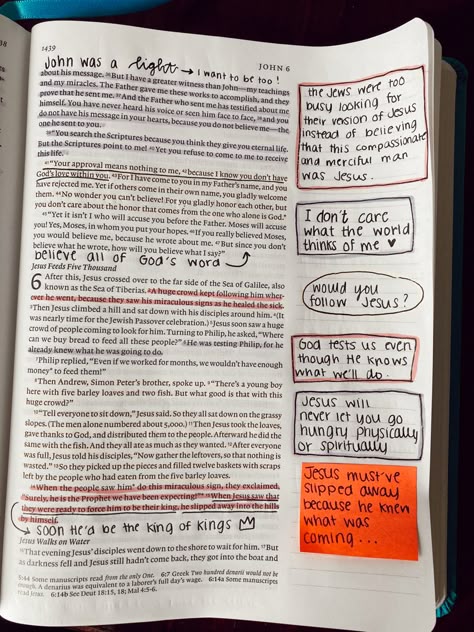 1439
JOHN 6
John was a light → I want to be too!
about his message. 36But I have a greater witness than John—my teachings
and my miracles. The Father gave me these works to accomplish, and they
prove that he sent me. 37And the Father who sent me has testified about me
himself. You have never heard his voice or seen him face to face, 38and you
do not have his message in your hearts, because you do not believe me—the
one he sent to you.
39"You search the Scriptures because you think they give you eternal life.
But the Scriptures point to me! 40Yet you refuse to come to me to receive
this life.
41"Your approval means nothing to me, 42because I know you don't have
God's love within you. 43For I have come to you in my Father's name, and you
have rejected me. Yet if others come in their own name, you gladly welcome
them. 44No wonder you can't believe! For you gladly honor each other, but
you don't care about the honor that comes from the one who alone is God.
45"Yet it isn't I who will accuse you before the Father. Moses will accuse
you! Yes, Moses, in whom you put your hopes. 46If you really believed Moses,
you would believe me, because he wrote about me. 47But since you don't
believe what he wrote, how will you believe what I say?"
believe all of God's word
Jesus Feeds Five Thousand
6 After this, Jesus crossed over to the far side of the Sea of Galilee, also
known as the Sea of Tiberias. 2A huge crowd kept following him wher-
ever he went, because they saw his miraculous signs as he healed the sick.
3Then Jesus climbed a hill and sat down with his disciples around him. 4(It
was nearly time for the Jewish Passover celebration.) 5Jesus soon saw a huge
crowd of people coming to look for him. Turning to Philip, he asked, "Where
can we buy bread to feed all these people?" 6He was testing Philip, for he
already knew what he was going to do.
7Philip replied, "Even if we worked for months, we wouldn't have enough
money to feed them!"
8Then Andrew, Simon Peter's brother, spoke up. 9"There's a young boy
here with five barley loaves and two fish. But what good is that with this
huge crowd?"
10"Tell everyone to sit down," Jesus said. So they all sat down on the grassy
slopes. (The men alone numbered about 5,000.) 11Then Jesus took the loaves,
gave thanks to God, and distributed them to the people. Afterward he did the
same with the fish. And they all ate as much as they wanted. 12After everyone
was full, Jesus told his disciples, "Now gather the leftovers, so that nothing is
wasted." 13So they picked up the pieces and filled twelve baskets with scraps
left by the people who had eaten from the five barley loaves.
14When the people saw him do this miraculous sign, they exclaimed,
"Surely, he is the Prophet we have been expecting!" 15When Jesus saw that
they were ready to force him to be their king, he slipped away into the hills
by himself.
soon He'd be the king of kings
Jesus Walks on Water
16That evening Jesus' disciples went down to the shore to wait for him. 17But
as darkness fell and Jesus still hadn't come back, they got into the boat and
5:44 Some manuscripts read from the only One. 6:7 Greek Two hundred denarii would not be
enough. A denarius was equivalent to a laborer's full day's wage. 6:14a Some manuscripts
read signs. 6:14b See Deut 18:15, 18; Mal 4:5-6.
the Jews were too
busy looking for
their version of Jesus
instead of believing
that this compassionate
and merciful man
was Jesus.
I don't care
what the world
thinks of me ♥
would you
follow Jesus?
God tests us even
though He knows
what we'll do.
Jesus will
never let you go
hungry physically
or spiritually
Jesus must've
slipped away
because he knew
what was
coming...